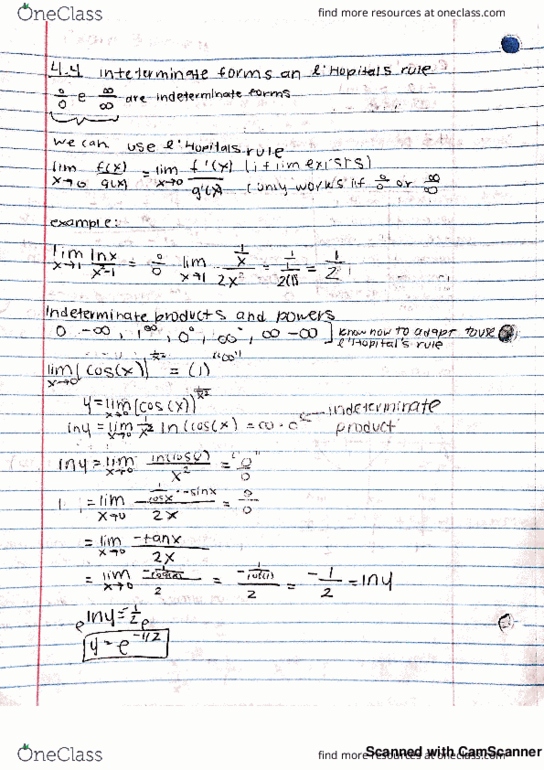 OneClass find more resources at oneclass.com
4.4 interminate forms an l'Hopitals rule
0/0 e ∞/∞ are indeterminate forms
we can use l'Hopitals rule
lim x→0 f(x)/g(x) = lim x→0 f'(x)/g'(x) (if lim exists)
(only works if 0/0 or ∞/∞
example:
lim x→1 lnx/x²-1 = 0/0 lim x→1 1/x / 2x² = 1/1 / 2(1) = 1/2
Indeterminate products and powers
0·-∞, 1^∞, 0⁰, ∞⁰, ∞-∞ ] know how to adapt to use
l'Hopital's rule
lim x→0 [cos(x)]^1/x² = (1)^"∞"
y = lim x→0 [cos(x)]^1/x²
lny = lim x→0 1/x² ln(cos(x) = ∞·0 ← indeterminate
product
lny = lim x→0 ln(cosx)/x² = "0"/0
= lim x→0 1/cosx · -sinx / 2x = 0/0
= lim x→0 -tanx/2x
= -1/2 = lny
e^lny = 1/2 e
y = e^-1/2
OneClass find more resources at oneclass.com
Scanned with CamScanner